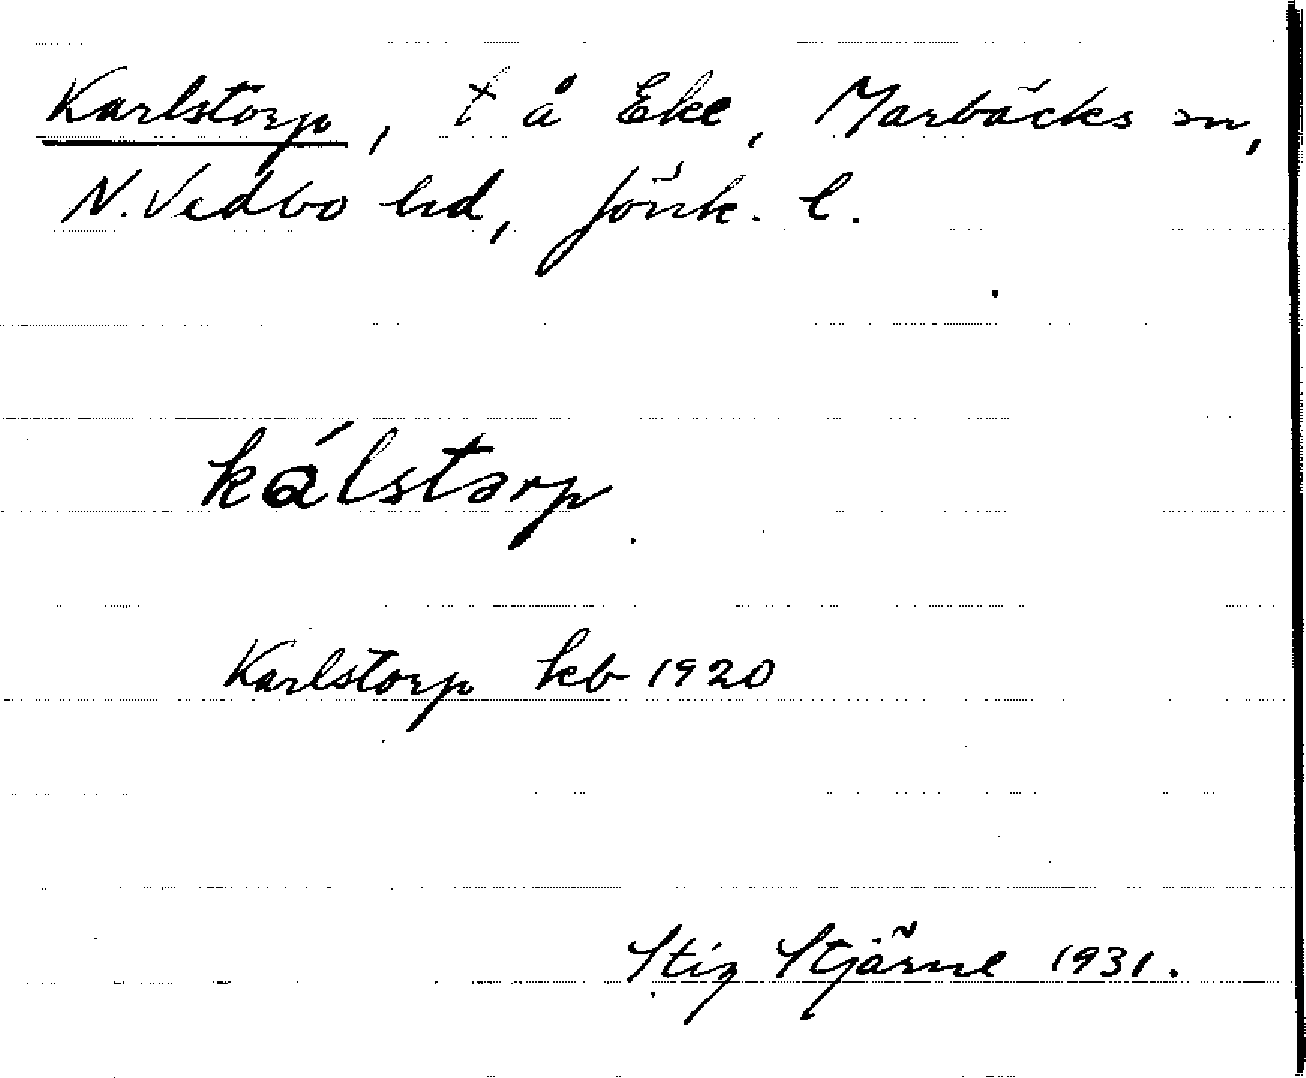 Karlstorp, t å Eke, Marbäcks sn,
N. Vedbo hd, Jönk. l.
kálstorp
Karlstorp kb 1920
Stig Stjärne 1931.